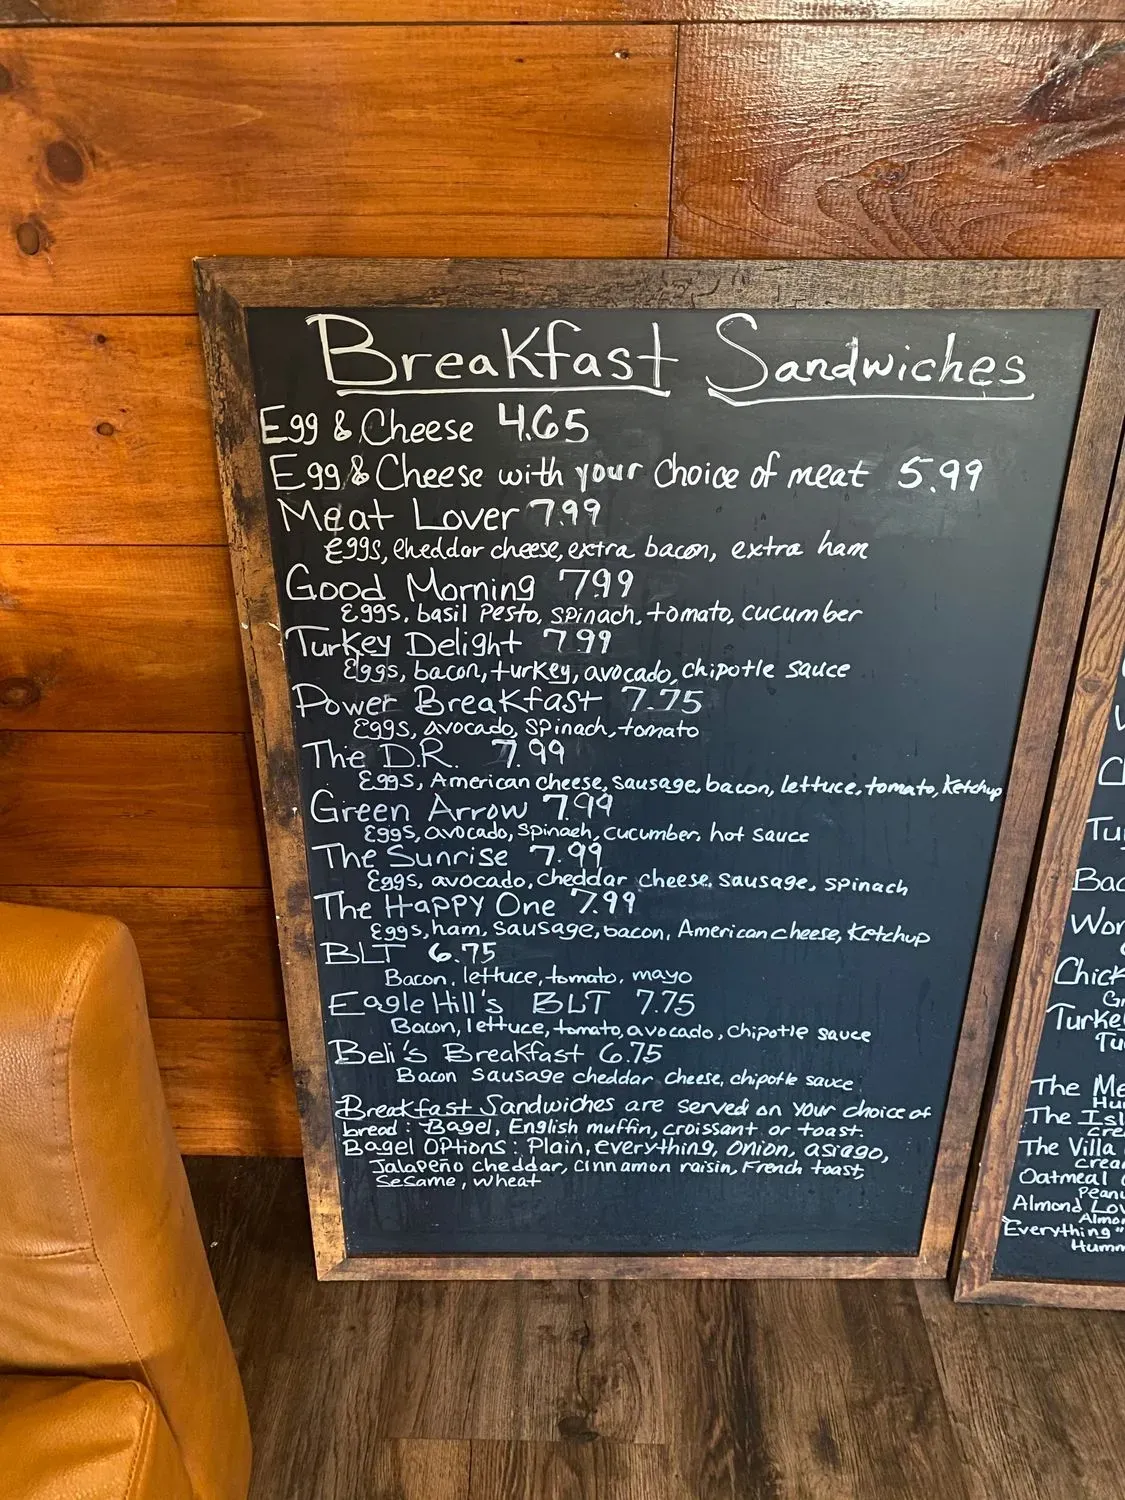 Breakfast Sandwiches
Egg & Cheese 4.65
Egg & Cheese with your choice of meat 5.99
Meat Lover 7.99
Eggs, Cheddar cheese, extra bacon, extra ham
Good Morning 7.99
Eggs, basil Pesto, spinach, tomato, cucumber
Turkey Delight 7.99
Eggs, bacon, turkey, avocado, chipotle sauce
Power Breakfast 7.75
Eggs, avocado, spinach, tomato
The D.R. 7.99
Eggs, American cheese, sausage, bacon, lettuce, tomato, Ketchup
Green Arrow 7.99
Eggs, avocado, spinach, cucumber, hot sauce
The Sunrise 7.99
Eggs, avocado, cheddar cheese, sausage, spinach
The Happy One 7.99
Eggs, ham, sausage, bacon, American cheese, Ketchup
BLT 6.75
Bacon, lettuce, tomato, mayo
Eagle Hill's BLT 7.75
Bacon, lettuce, tomato, avocado, chipotle sauce
Beli's Breakfast 6.75
Bacon Sausage cheddar cheese, chipotle sauce
Breakfast Sandwiches are served on your choice of
bread: Bagel, English muffin, croissant or toast.
Bagel Options: Plain, everything, onion, asiago,
Jalapeño cheddar, cinnamon raisin, French toast,
Sesame, wheat
Tu
Bac
Wor
Chick
Gr
Turke
Tu
The Me
Hu
The Isl
cre
The Villa
crea
Oatmeal
Peanu
Almond Lov
Almo
Everything "
Humm